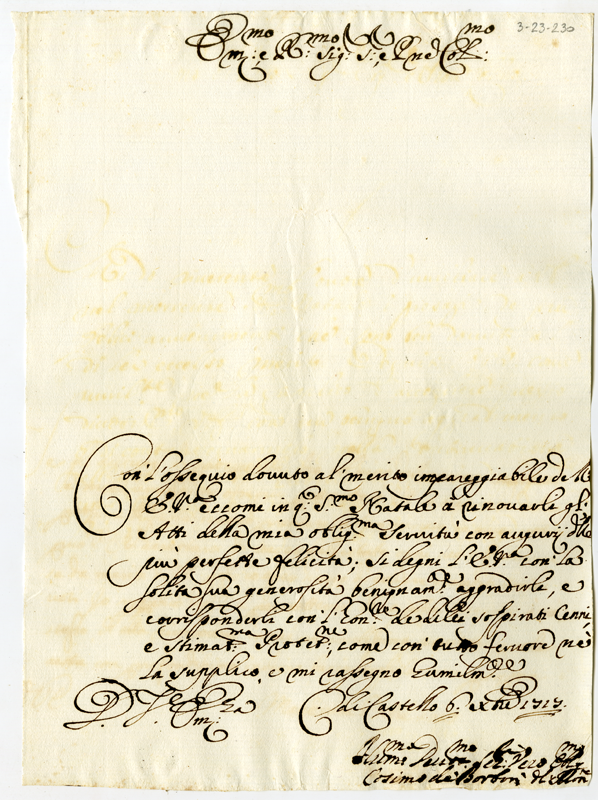 3-23-230
Em:mo e R:mo Sig:r S:, e Pne Col:mo
Con l'ossequio dovuto al merito impareggiabile de
E. V.ra eccomi in q.o S.mo Natale à rinovarle gl.
Atti della mia oblig.ma Servitù con augurij
più perfette felicità; si degni l'E. V.ra con la
solita sua generosità benignam.te aggradirli, e
corrisponderli con l'on.re de di lei sospirati Cenni
e stimat.ma Protet.ne, come con tutto fervore nè
La supplico, e mi rassegno Humilm.te
D. V. Em:za C. di Castello 6. Xbre 1717.
Cosimo de Borboni